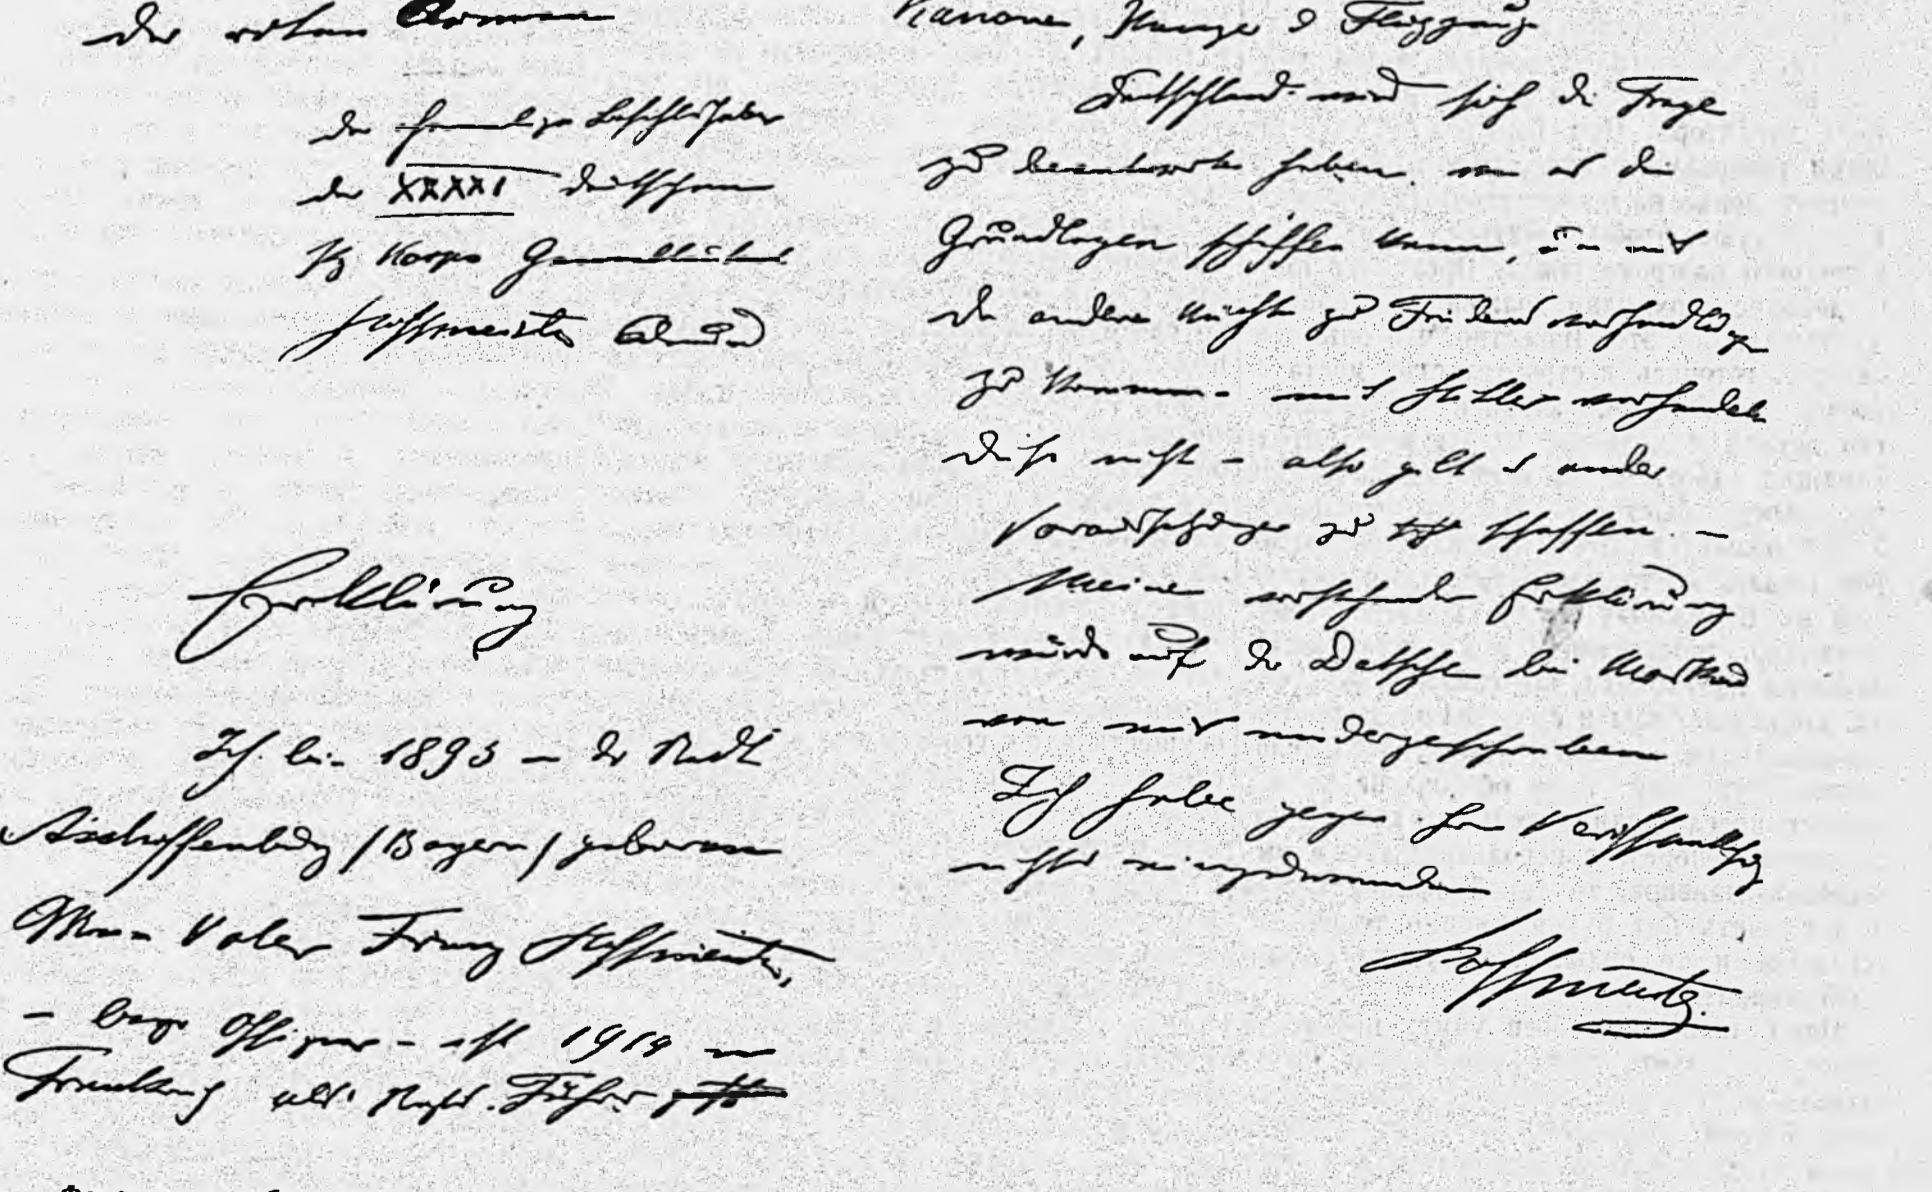 der roten Armee
der ehemalige Befehlshaber
der XXXXI deutschen
Pz Korps Generalleutnant
Hoffmeister Edmund
Erklärung
Ich bin 1893 in der Stadt
Aschaffenburg /Bayern/ geboren
Mein Vater Franz Hoffmeister,
– bayr Offizier – ist 1914 in
Frankreich als Regts. Führer
Kanone, Panzer u Flugzeuge
Deutschland wird sich die Frage
zu beantworten haben, wie es die
Grundlagen schaffen kann, um mit
den anderen Mächten zu Friedensverhandlungen
zu kommen – mit Hitler verhandeln
diese nicht – also gilt es andere
Voraussetzungen zu schaffen. –
Meine vorstehende Erklärung
wurde auf der Datsche bei Moskau
von mir niedergeschrieben
Ich habe gegen ihre Veröffentlichung
nichts einzuwenden
Hoffmeister.